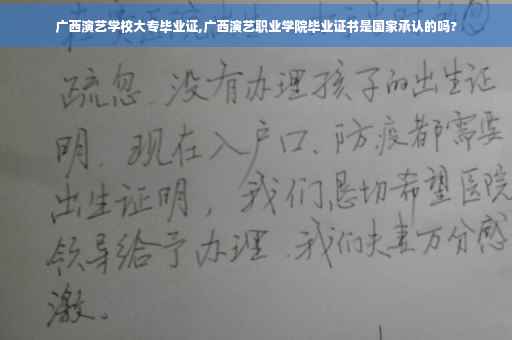 广西演艺学校大专毕业证,广西演艺职业学院毕业证书是国家承认的吗?
疏忽、没有办理孩子的出生证
明、现在入户口、防疫都需要
出生证明，我们恳切希望医院
领导给予办理、我们夫妻万分感
激。